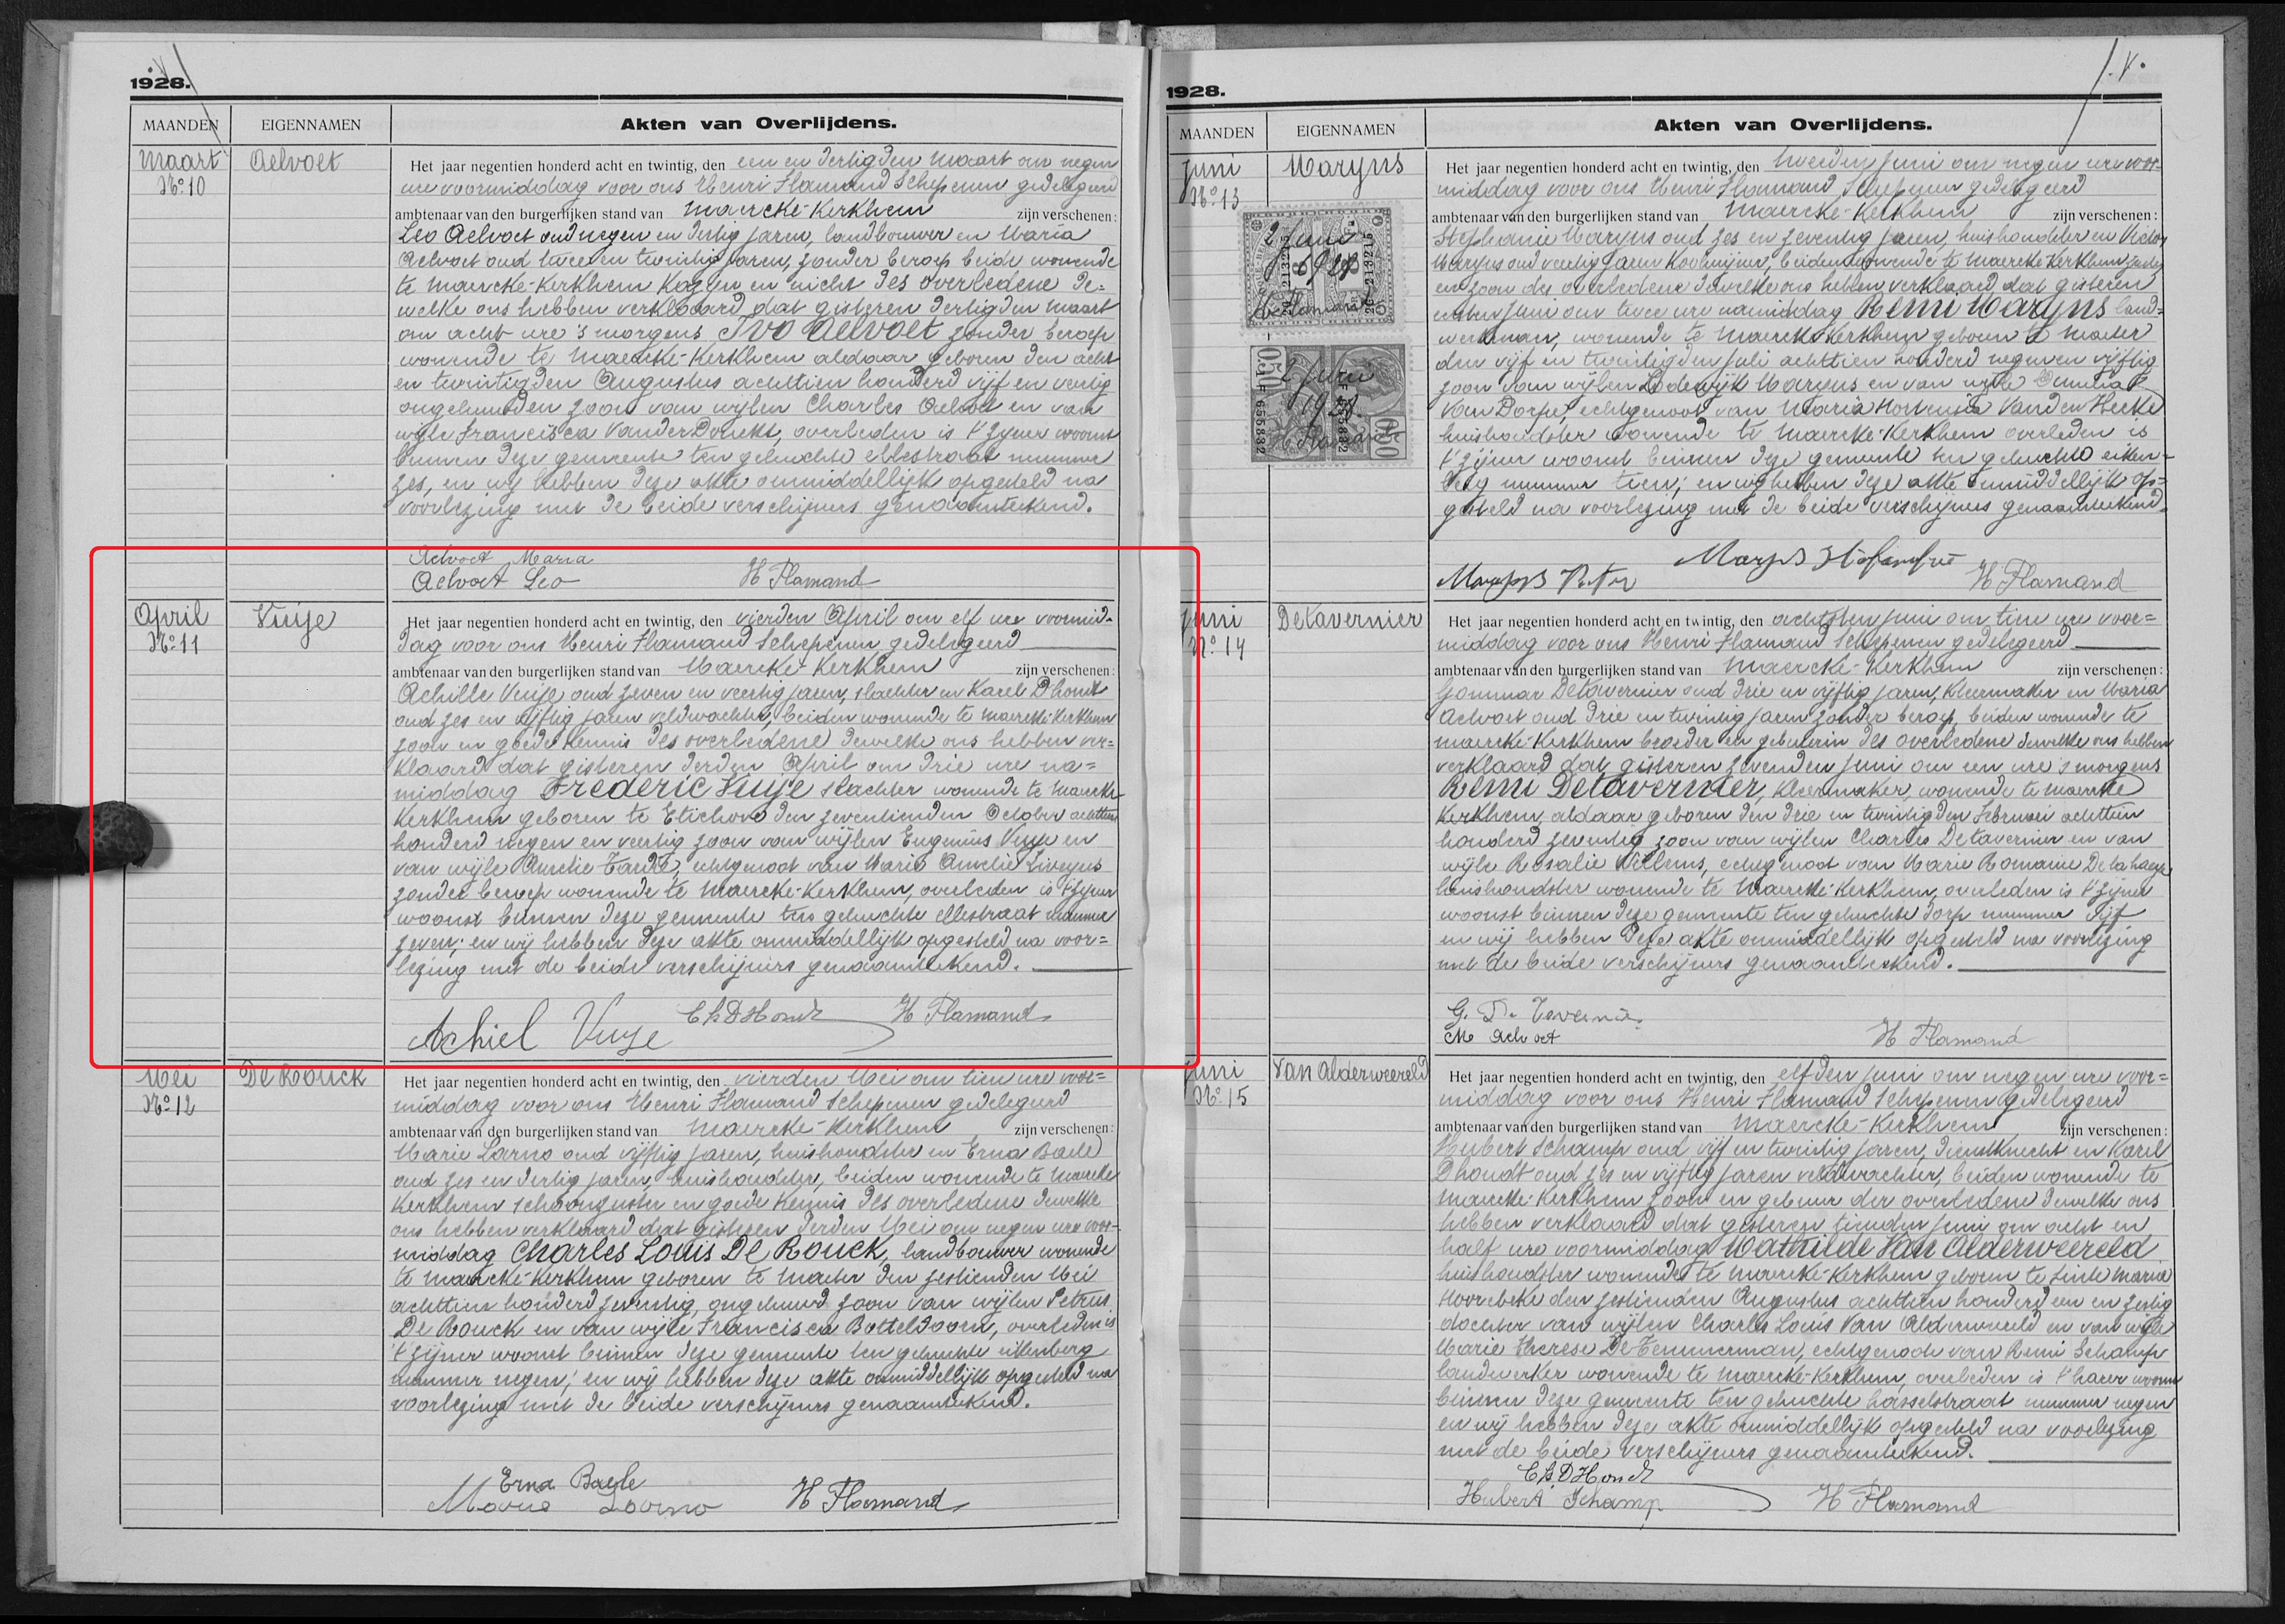 1928.
MAANDEN EIGENNAMEN Akten van Overlijdens.
Maart Aelvoet Het jaar negentien honderd acht en twintig, den een en dertigden Maart om negen
No 10 ure voormiddag voor ons Henri Flamand Schepenen gedelegeerd
ambtenaar van den burgerlijken stand van Maercke-Kerkhem zijn verschenen:
Leo Aelvoet oud negen en dertig jaren, landbouwer en Maria
Aelvoet oud twee en twintig jaren, zonder beroep beide wonende
te Maercke-Kerkhem Kozijn en nicht des overledene de=
welke ons hebben verklaard dat gisteren dertigden Maart
om acht ure 's morgens Ivo Aelvoet zonder beroep
wonende te Maercke-Kerkhem aldaar geboren den acht
en twintigden Augustus achttien honderd vijf en veertig
ongehuwden zoon van wijlen Charles Aelvoet en van
wijle Francisca VanderDonckt, overleden is t' zijner woonst
binnen deze gemeente ten gehuchte ellestraat nummer
zes, en wij hebben deze akte onmiddellijk opgesteld na
voorlezing met de beide verschijners genaamteekend.
Aelvoet Maria
Aelvoet Leo H Flamand
April Vuije Het jaar negentien honderd acht en twintig, den vierden April om elf ure voormid-
No 11 dag voor ons Henri Flamand Schepenen gedelegeerd
ambtenaar van den burgerlijken stand van Maercke-Kerkhem zijn verschenen:
Achille Vuije oud zeven en veertig jaren, slachter en Karel Dhondt
oud zes en vijftig jaren veldwachter, beiden wonende te Maercke-Kerkhem
zoon en goede Kennis des overledene dewelke ons hebben ver=
klaard dat gisteren derden April om drie ure na=
middag Frederic Vuije slachter wonende te Maercke
Kerkhem geboren te Etichove den zeventienden October achttien
honderd negen en veertig zoon van wijlen Eugenius Vuije en
van wijle Amelie Tardé, echtgenoot van Maria Amelie Livijns
zonder beroep wonende te Maercke-Kerkhem, overleden is t'zijner
woonst binnen deze gemeente ten gehuchte ellestraat nummer
zeven; en wij hebben deze akte onmiddellijk opgesteld na voor=
lezing met de beide verschijners genaamteekend.
Achiel Vuije Ch DHondt H Flamand
Mei De Rouck Het jaar negentien honderd acht en twintig, den vierden Mei om tien ure voor=
No 12 middag voor ons Henri Flamand Schepenen gedelegeerd
ambtenaar van den burgerlijken stand van Maercke-Kerkhem zijn verschenen:
Marie Larno oud vijftig jaren, huishoudster en Erna Baele
oud zes en dertig jaren, huishoudster, beiden wonende te Maercke
Kerkhem schoonzuster en goede Kennis des overledene dewelke
ons hebben verklaard dat gisteren derden Mei om negen ure voor-
middag Charles Louis De Rouck, landbouwer wonende
te Maercke-Kerkhem geboren te Mater den zestienden Mei
achttien honderd zeventig, ongehuwd zoon van wijlen Petrus
De Rouck en van wijle Francisca Botteldoorn, overleden is
t'zijner woonst binnen deze gemeente ten gehuchte eikenberg
nummer negen; en wij hebben deze akte onmiddellijk opgesteld na
voorlezing met de beide verschijners genaamteekend.
Erna Baele
Marie Larno H Flamand
1928.
MAANDEN EIGENNAMEN Akten van Overlijdens.
Juni Maryns Het jaar negentien honderd acht en twintig, den tweeden Juni om negen ure voor=
No 13 middag voor ons Henri Flamand Schepenen gedelegeerd
ambtenaar van den burgerlijken stand van Maercke-Kerkhem zijn verschenen:
Stephanie Maryns oud zes en zeventig jaren, huishoudster en Victor
Maryns oud veertig jaren Koolmijner, beiden wonende te Maercke-Kerkhem zuster
en zoon des overledene dewelke ons hebben verklaard dat gisteren
eersten Juni om twee ure namiddag Remi Maryns land=
werkman, wonende te Maercke-Kerkhem geboren te Mater
den vijf en twintigden Juli achttien honderd negen en vijftig
zoon van wijlen Lodewijk Maryns en van wijle Emilia
Van Dorpe, echtgenoot van Maria Hortensia Vanden Hecke
huishoudster wonende te Maercke-Kerkhem overleden is
t'zijner woonst binnen deze gemeente ten gehuchte eiken-
berg nummer tien; en wij hebben deze akte onmiddellijk op=
gesteld na voorlezing met de beide verschijners genaamteekend.
2 Juni
1928
H Flamand
213215
2 Juni
1928
H Flamand
655832
Maryns Stefanie
Maryns Victor H Flamand
Juni Detavernier Het jaar negentien honderd acht en twintig, den achtsten Juni om tien ure voor=
No 14 middag voor ons Henri Flamand Schepenen gedelegeerd
ambtenaar van den burgerlijken stand van Maercke-Kerkhem zijn verschenen:
Gommar Detavernier oud drie en vijftig jaren, Kleermaker en Maria
Aelvoet oud drie en twintig jaren zonder beroep, beiden wonende te
Maercke-Kerkhem broeder en gebuurin des overledene dewelke ons hebben
verklaard dat gisteren zevenden Juni om een ure 's morgens
Remi Detavernier, Kleermaker, wonende te Maercke
Kerkhem, aldaar geboren den drie en twintigden Februari achttien
honderd zeventig zoon van wijlen Charles Detavernier en van
wijle Rosalie Willems, echtgenoot van Marie Romanie Delahaeye
huishoudster wonende te Maercke-Kerkhem, overleden is t'zijner
woonst binnen deze gemeente ten gehuchte Dorp nummer vijf
en wij hebben deze akte onmiddellijk opgesteld na voorlezing
met de beide verschijners genaamteekend.
G. De Tavernier
M Aelvoet H Flamand
Juni Van Alderweereld Het jaar negentien honderd acht en twintig, den elfden Juni om negen ure voor=
No 15 middag voor ons Henri Flamand Schepenen gedelegeerd
ambtenaar van den burgerlijken stand van Maercke-Kerkhem zijn verschenen:
Hubert Schamp oud vijf en twintig jaren, dienstknecht en Karel
Dhondt oud zes en vijftig jaren veldwachter, beiden wonende te
Maercke-Kerkhem zoon en gebuur der overledene dewelke ons
hebben verklaard dat gisteren tienden Juni om acht en
half ure voormiddag Mathilde Van Alderweereld
huishoudster wonende te Maercke-Kerkhem geboren te Sinte Maria
Hoorebeke den zestienden Augustus achttien honderd een en zestig
dochter van wijlen Charles Louis Van Alderweereld en van wijle
Marie Therese De Temmerman, echtgenoote van Remi Schamp
landwerker wonende te Maercke-Kerkhem, overleden is t'harer woonst
binnen deze gemeente ten gehuchte hasselstraat nummer negen
en wij hebben deze akte onmiddellijk opgesteld na voorlezing
met de beide verschijners genaamteekend.
Ch DHondt
Hubert Schamp H Flamand